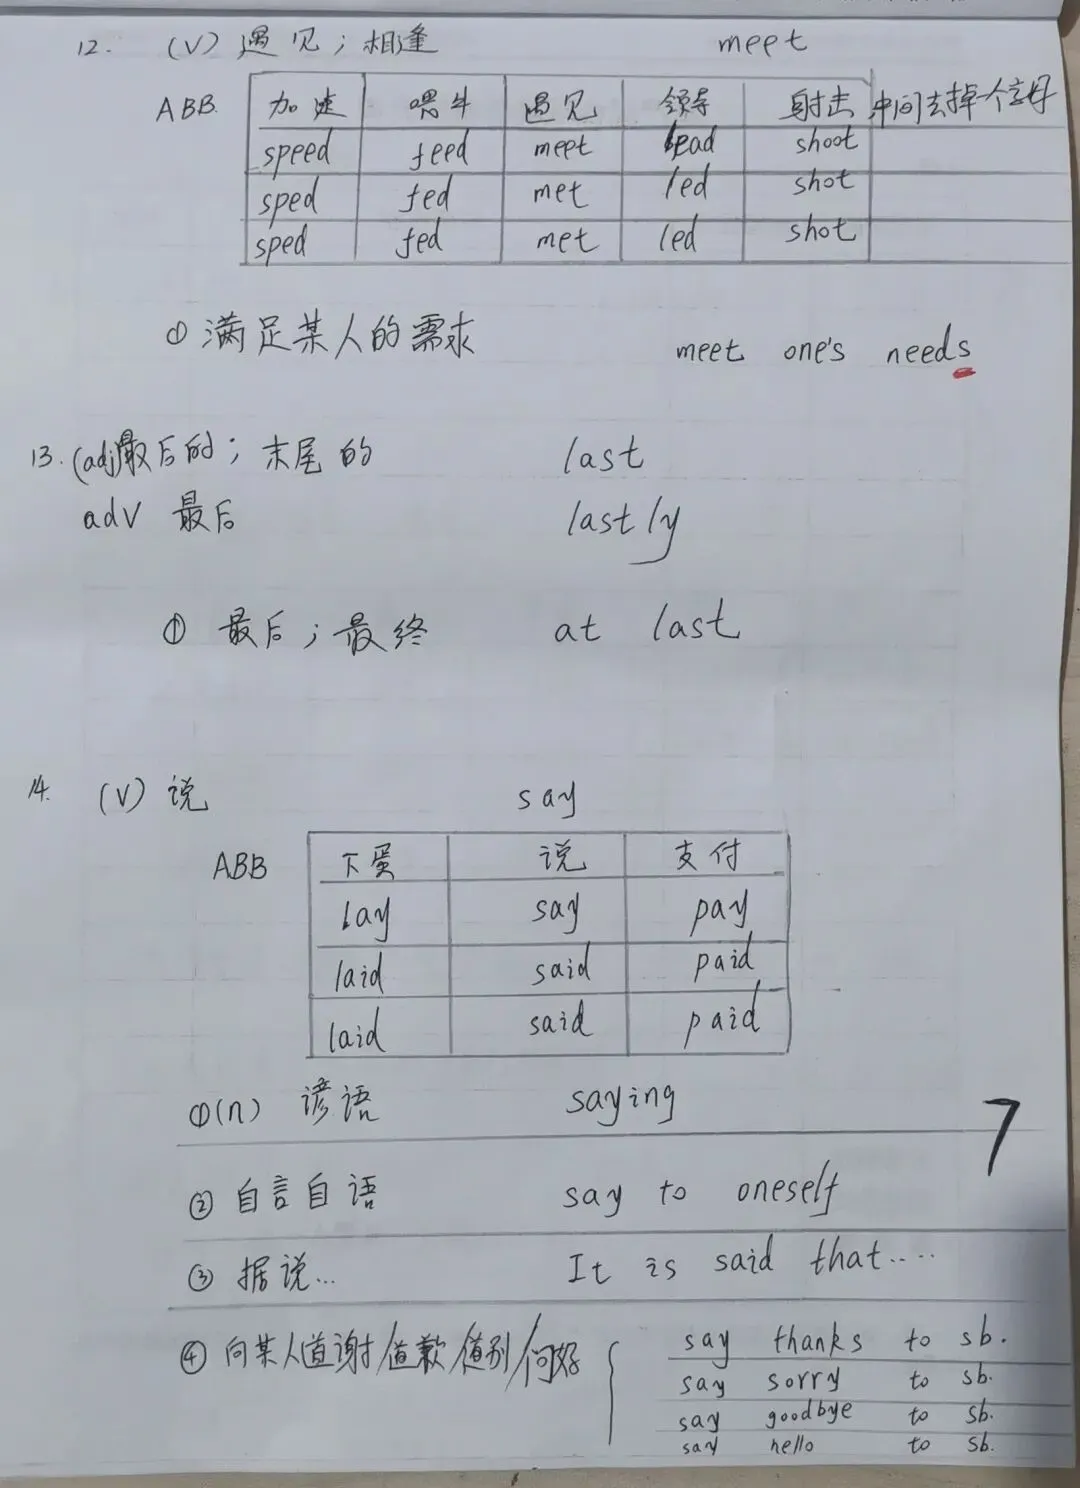 12. (V) 遇见；相逢 meet
ABB 加速 喂牛 遇见 领导 射击 中间去掉一个字母
speed feed meet lead shoot
sped fed met led shot
sped fed met led shot
① 满足某人的需求 meet one's needs
13. (adj)最后的；末尾的 last
adv 最后 lastly
① 最后；最终 at last
14. (V) 说 say
ABB 下蛋 说 支付
lay say pay
laid said paid
laid said paid
①(n) 谚语 saying
② 自言自语 say to oneself
③ 据说... It is said that....
④ 向某人道谢/道歉/道别/问好 say thanks to sb.
say sorry to sb.
say goodbye to sb.
say hello to sb.
7